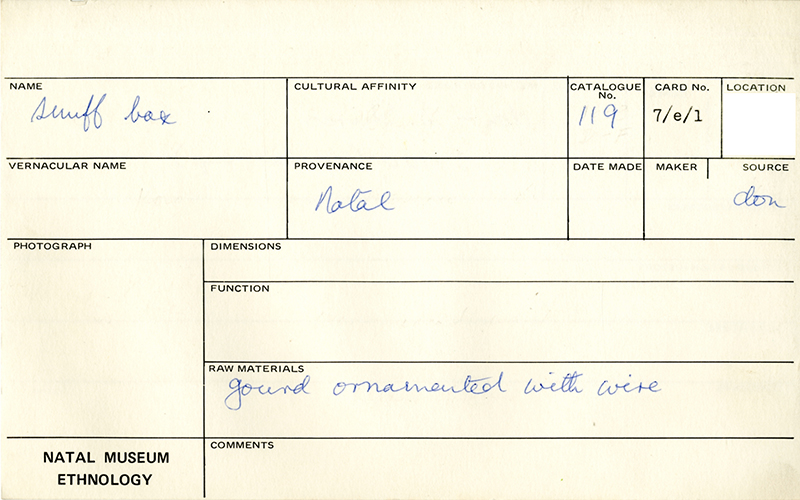 NAME
snuff box
CULTURAL AFFINITY
CATALOGUE No.
119
CARD No.
7/e/1
LOCATION
VERNACULAR NAME
PROVENANCE
Natal
DATE MADE
MAKER
SOURCE
don
PHOTOGRAPH
DIMENSIONS
FUNCTION
RAW MATERIALS
gourd ornamented with wire
NATAL MUSEUM
ETHNOLOGY
COMMENTS